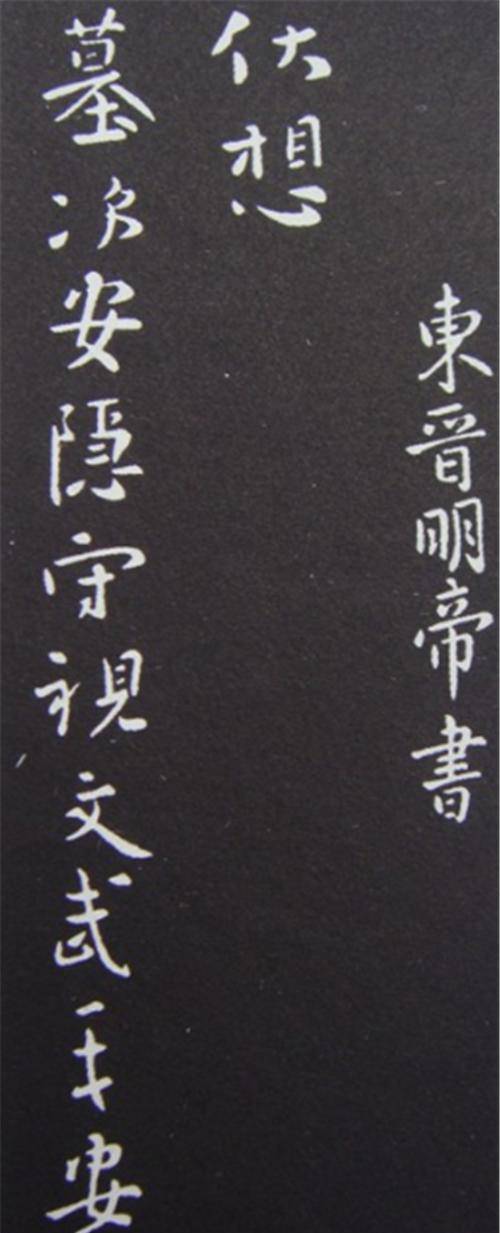 東晋明帝書
伏想
墓次安隱守視文武